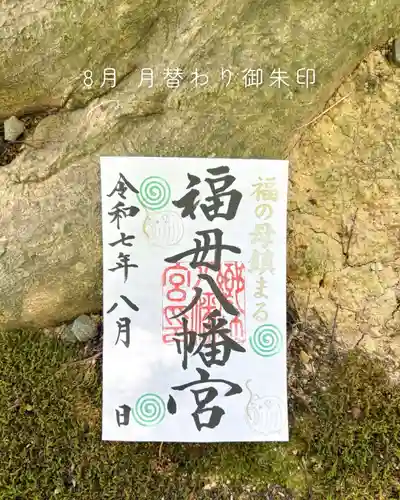 8月 月替わり御朱印
福の母鎮まる
福母八幡宮
令和七年 八月 日